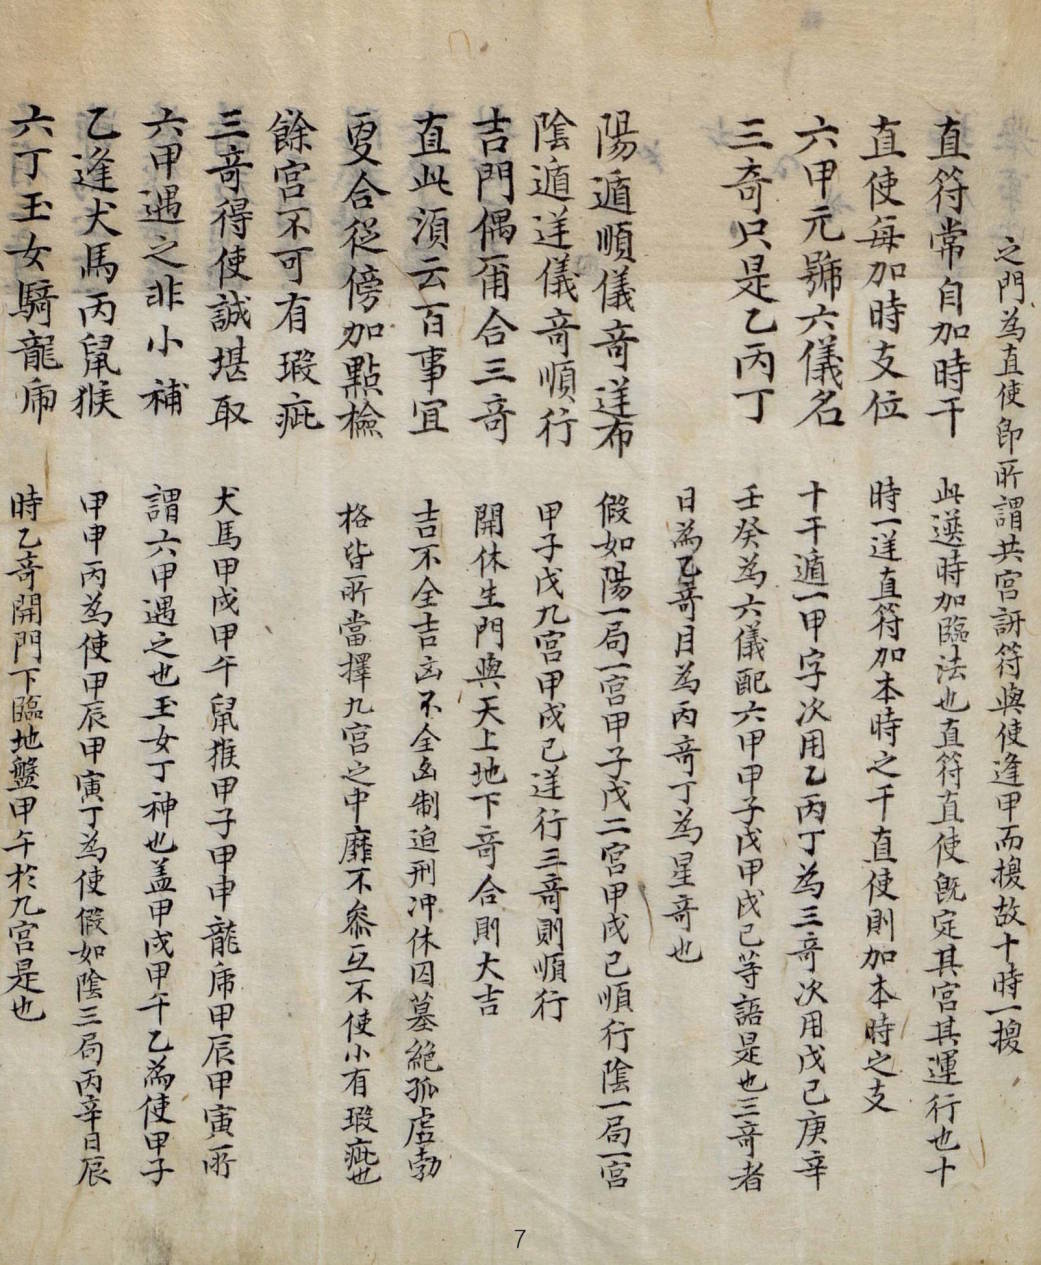 之門為直使卽所謂共宮訝符與使逢甲而換故十時一換
直符常自加時干 此選時加臨法也直符直使旣定其宮其運行也十
直使每加時支位 時一逆直符加本時之干直使則加本時之支
六甲元號六儀名 十干遁一甲字次用乙丙丁為三竒次用戊己庚辛
三奇只是乙丙丁 壬癸為六儀配六甲甲子戊甲戌己等語是也三竒者
日為乙竒月為丙竒丁為星竒也
陽遁順儀竒逆布 假如陽一局一宮甲子戊二宮甲戌己順行陰一局一宮
陰遁逆儀竒順行 甲子戊九宮甲戌己逆行三竒則順行
吉門偶甭合三竒 開休生門與天上地下竒合則大吉
直此湏云百事宜 吉不全吉凶不全凶制迫刑冲休囚墓絶孤虛勃
更合從傍加點檢 格皆所當擇九宮之中靡不叅互不使小有瑕疵也
餘宮不可有瑕疵
三竒得使誠堪取 犬馬甲戌甲午鼠猴甲子甲申龍乕甲辰甲寅所
六甲遇之非小補 謂六甲遇之也玉女丁神也盖甲戌甲午乙為使甲子
乙逢犬馬丙鼠猴 甲申丙為使甲辰甲寅丁為使假如陰三局丙辛日辰
六丁玉女騎龍乕 時乙竒開門下臨地盤甲午於九宮是也
7